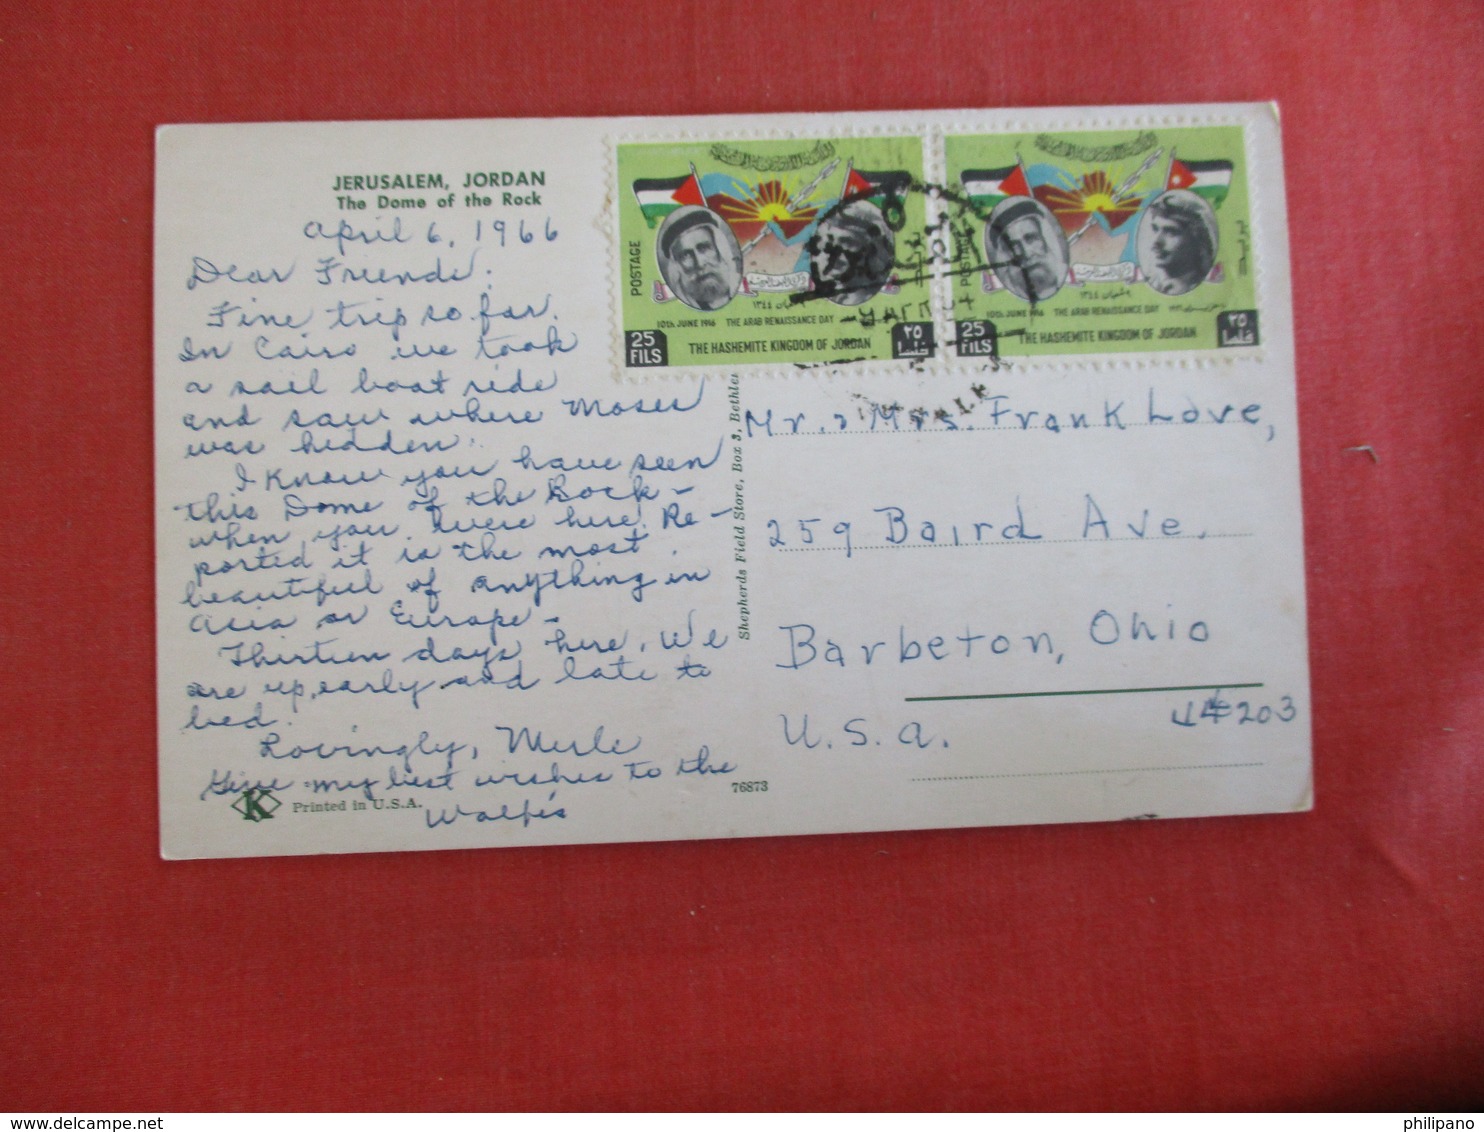 JERUSALEM, JORDAN
The Dome of the Rock
April 6, 1966
Dear Friends:
Fine trip so far.
In Cairo we took
a sail boat ride
and saw where Moses
was hidden.
I know you have seen
this Dome of the Rock-
when you were here. Re-
ported it is the most
beautiful of anything in
Asia or Europe-
Thirteen days here. We
are up early and late to
bed.
Lovingly, Merle
Give my best wishes to the
K Printed in U.S.A.
76873
Shepherds Field Store, Box 3, Bethle
POSTAGE
10th JUNE 1916 THE ARAB RENAISSANCE DAY
25 FILS
THE HASHEMITE KINGDOM OF JORDAN
٢٥
فلسا
POSTAGE
١٣٤٤
10th JUNE 1916 THE ARAB RENAISSANCE DAY
25 FILS
THE HASHEMITE KINGDOM OF JORDAN
٢٥
فلسا
Mr. & Mrs. Frank Love,
259 Baird Ave.
Barbeton, Ohio
44203
U.S.A.
delcampe.net
philipano